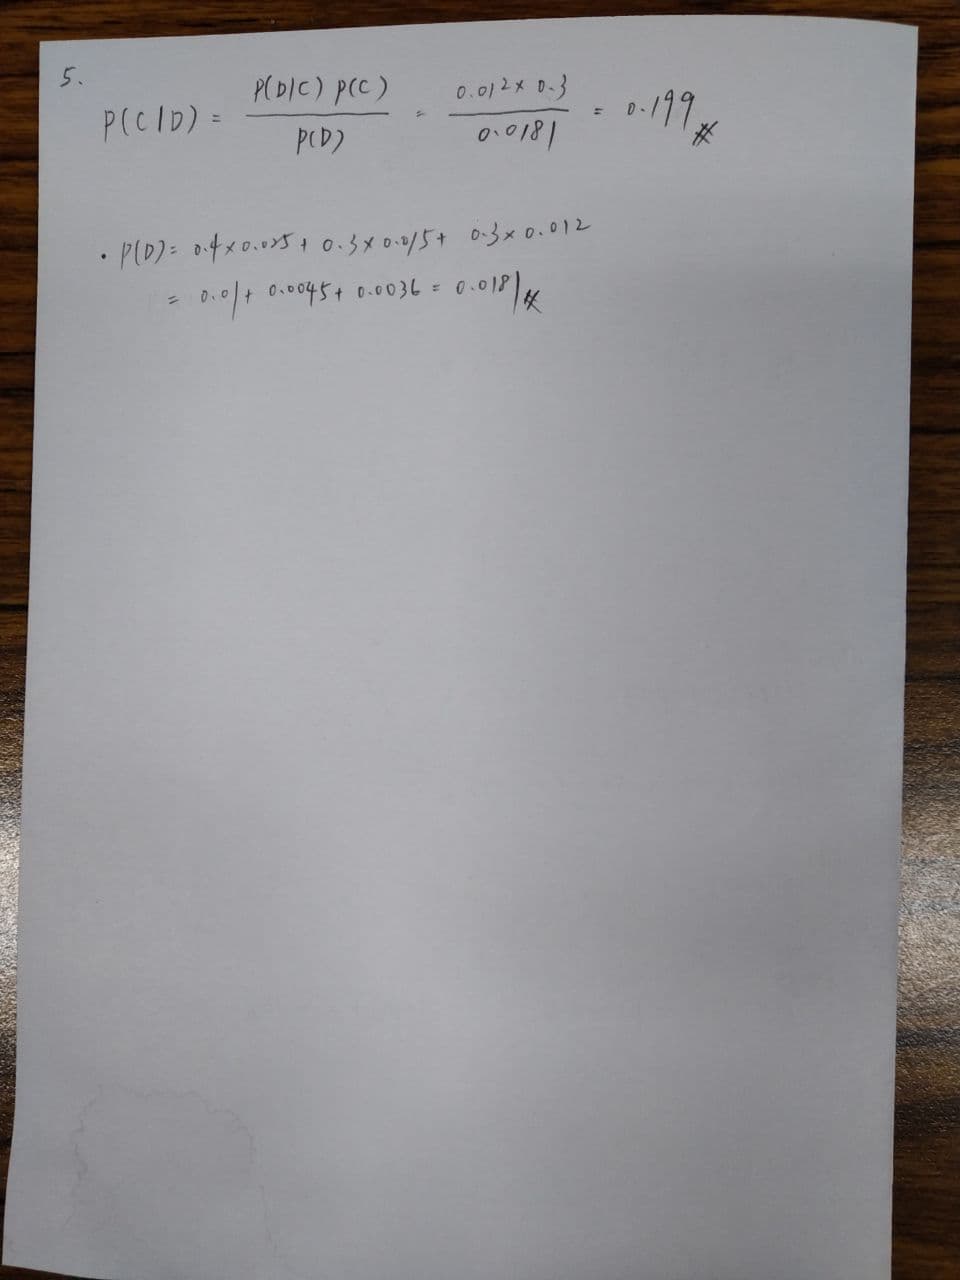 5.
P(C|D) = P(D|C) P(C) / P(D) = 0.012 × 0.3 / 0.0181 = 0.199 #
• P(D) = 0.4 × 0.025 + 0.3 × 0.015 + 0.3 × 0.012
= 0.01 + 0.0045 + 0.0036 = 0.0181 #